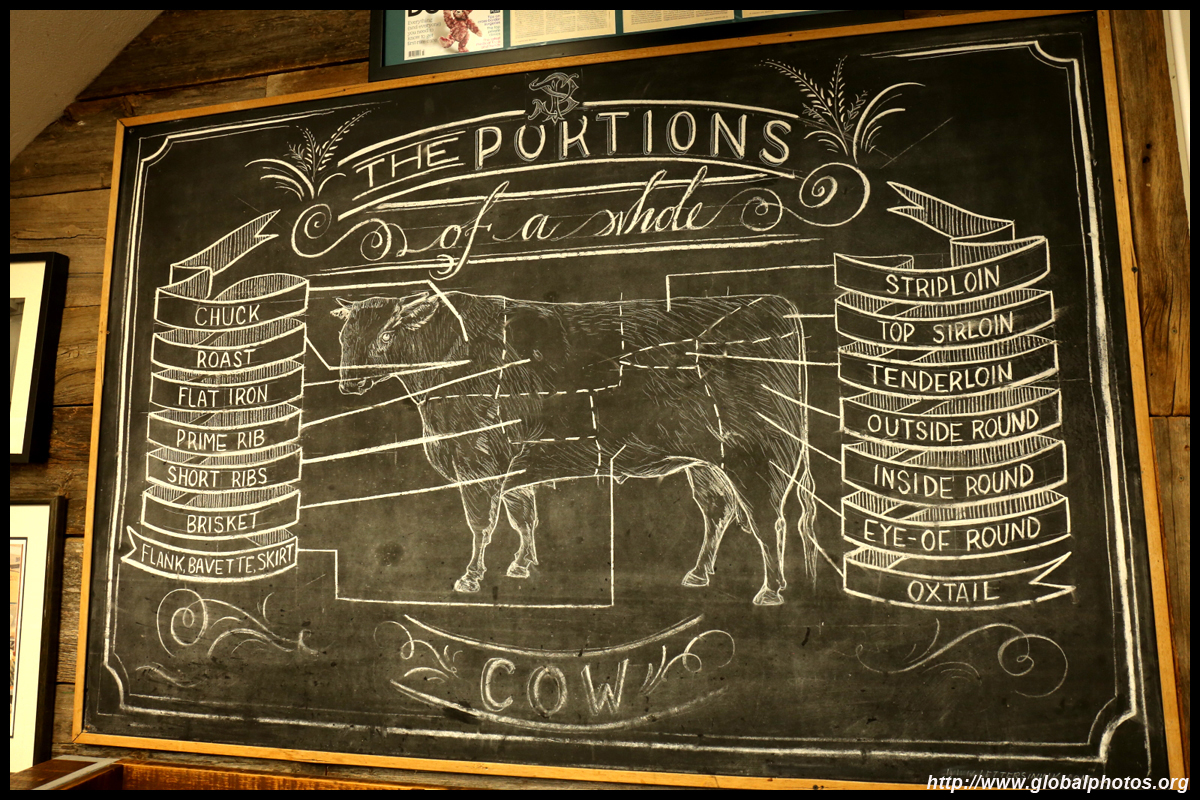 THE PORTIONS
of a whole
CHUCK
ROAST
FLAT IRON
PRIME RIB
SHORT RIBS
BRISKET
FLANK, BAVETTE, SKIRT
STRIPLOIN
TOP SIRLOIN
TENDERLOIN
OUTSIDE ROUND
INSIDE ROUND
EYE-OF ROUND
OXTAIL
COW
http://www.globalphotos.org